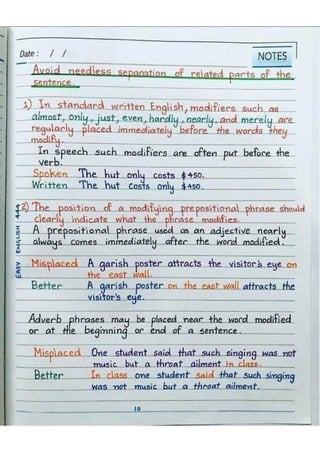 Date : / /
NOTES
Avoid needless separation of related parts of the
sentence.
1) In standard written English, modifiers such as
almost, only, just, even, hardly, nearly, and merely are
regularly placed immediately before the words they
modify.
In speech such modifiers are often put before the
verb.
Spoken The hut only costs $450.
Written The hut costs only $450.
2) The position of a modifying prepositional phrase should
clearly indicate what the phrase modifies.
A prepositional phrase used as an adjective nearly
always comes immediately after the word modified.
Misplaced A garish poster attracts the visitor's eye on
the east wall.
Better A garish poster on the east wall attracts the
visitor's eye.
Adverb phrases may be placed near the word modified
or at the beginning or end of a sentence.
Misplaced One student said that such singing was not
music but a throat ailment in class.
Better In class one student said that such singing
was not music but a throat ailment.
10
EASY ENGLISH 449